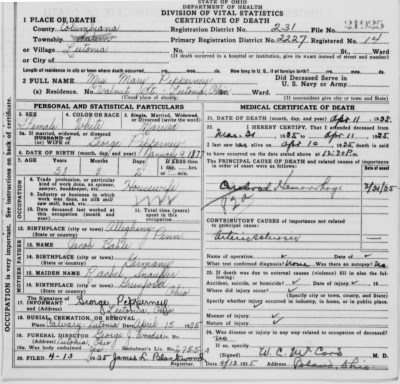 STATE OF OHIO
DEPARTMENT OF HEALTH
DIVISION OF VITAL STATISTICS
CERTIFICATE OF DEATH
21925
1 PLACE OF DEATH
County Columbiana Registration District No. 231 File No.
Township Primary Registration District No. 2227 Registered No. 14
or Village Leetonia No. St., Ward
or City of (If death occurred in a hospital or institution, give its name instead of street and number)
Length of residence in city or town where death occurred yrs. mos. ds. How long in U.S., if of foreign birth? yrs. mos. ds.
2 FULL NAME Mrs. Mary Pepperney Did Deceased Serve in U. S. Navy or Army
(a) Residence. No. Walnut St. Leetonia, Ohio St., Ward.
(Usual place of abode) (If nonresident give city or town and State)
PERSONAL AND STATISTICAL PARTICULARS
3. SEX Female
4. COLOR OR RACE White
5. Single, Married, Widowed, or Divorced (write the word) Married
5a. If married, widowed, or divorced HUSBAND of (or) WIFE of George Pepperney
6. DATE OF BIRTH (month, day, and year) January 9, 1877
7. AGE Years 58 Months Days 2
8. Trade, profession, or particular kind of work done, as spinner, sawyer, bookkeeper, etc. Housewife
9. Industry or business in which work was done, as silk mill, saw mill, bank, etc.
10. Date deceased last worked at this occupation (month and year)
11. Total time (years) spent in this occupation
12. BIRTHPLACE (city or town) Allegheny
(State or country) Penn
13. NAME Jacob
14. BIRTHPLACE (city or town) Germany
(State or country)
15. MAIDEN NAME Rachel
16. BIRTHPLACE (city or town) Greenford
(State or country) Ohio
17. The Signature of INFORMANT George Pepperney
(Address) Leetonia, Ohio
18. BURIAL, CREMATION, OR REMOVAL
Place Calvary-Leetonia Date April 15 1935
19. FUNERAL DIRECTOR George J. Woods
(Address) Leetonia, Ohio
19a. Was body embalmed Yes Embalmer's Lic. No. 2755-A
20. FILED 4-13 1935 James L. Blackwood
MEDICAL CERTIFICATE OF DEATH
21. DATE OF DEATH (month, day, and year) Apr 11, 1935
22. I HEREBY CERTIFY, That I attended deceased from
Mar 31 1935 to Apr 11 1935
I last saw her alive on Apr 10 1935 death is said
to have occurred on the date stated above at 12:30 P.m.
The PRINCIPAL CAUSE OF DEATH and related causes of importance in order of onset were as follows:
Cerebral Hemorrhage 3/31/35
CONTRIBUTORY CAUSES of importance not related to principal cause:
Arteriosclerosis
Name of operation Date of
What test confirmed diagnosis? None Was there an autopsy? No
23. If death was due to external causes (violence) fill in also the following:
Accident, suicide, or homicide? Date of injury 19
Where did injury occur?
(Specify city or town, county, and State)
Specify whether injury occurred in industry, in home, or in public place.
Manner of injury
Nature of injury
24. Was disease or injury in any way related to occupation of deceased? No
If so, specify
(Signed) W. C. McCord
Date 4/13 1935 Address Poland, Ohio
OCCUPATION is very important. See instructions on back of certificate.
OCCUPATION
FATHER
MOTHER